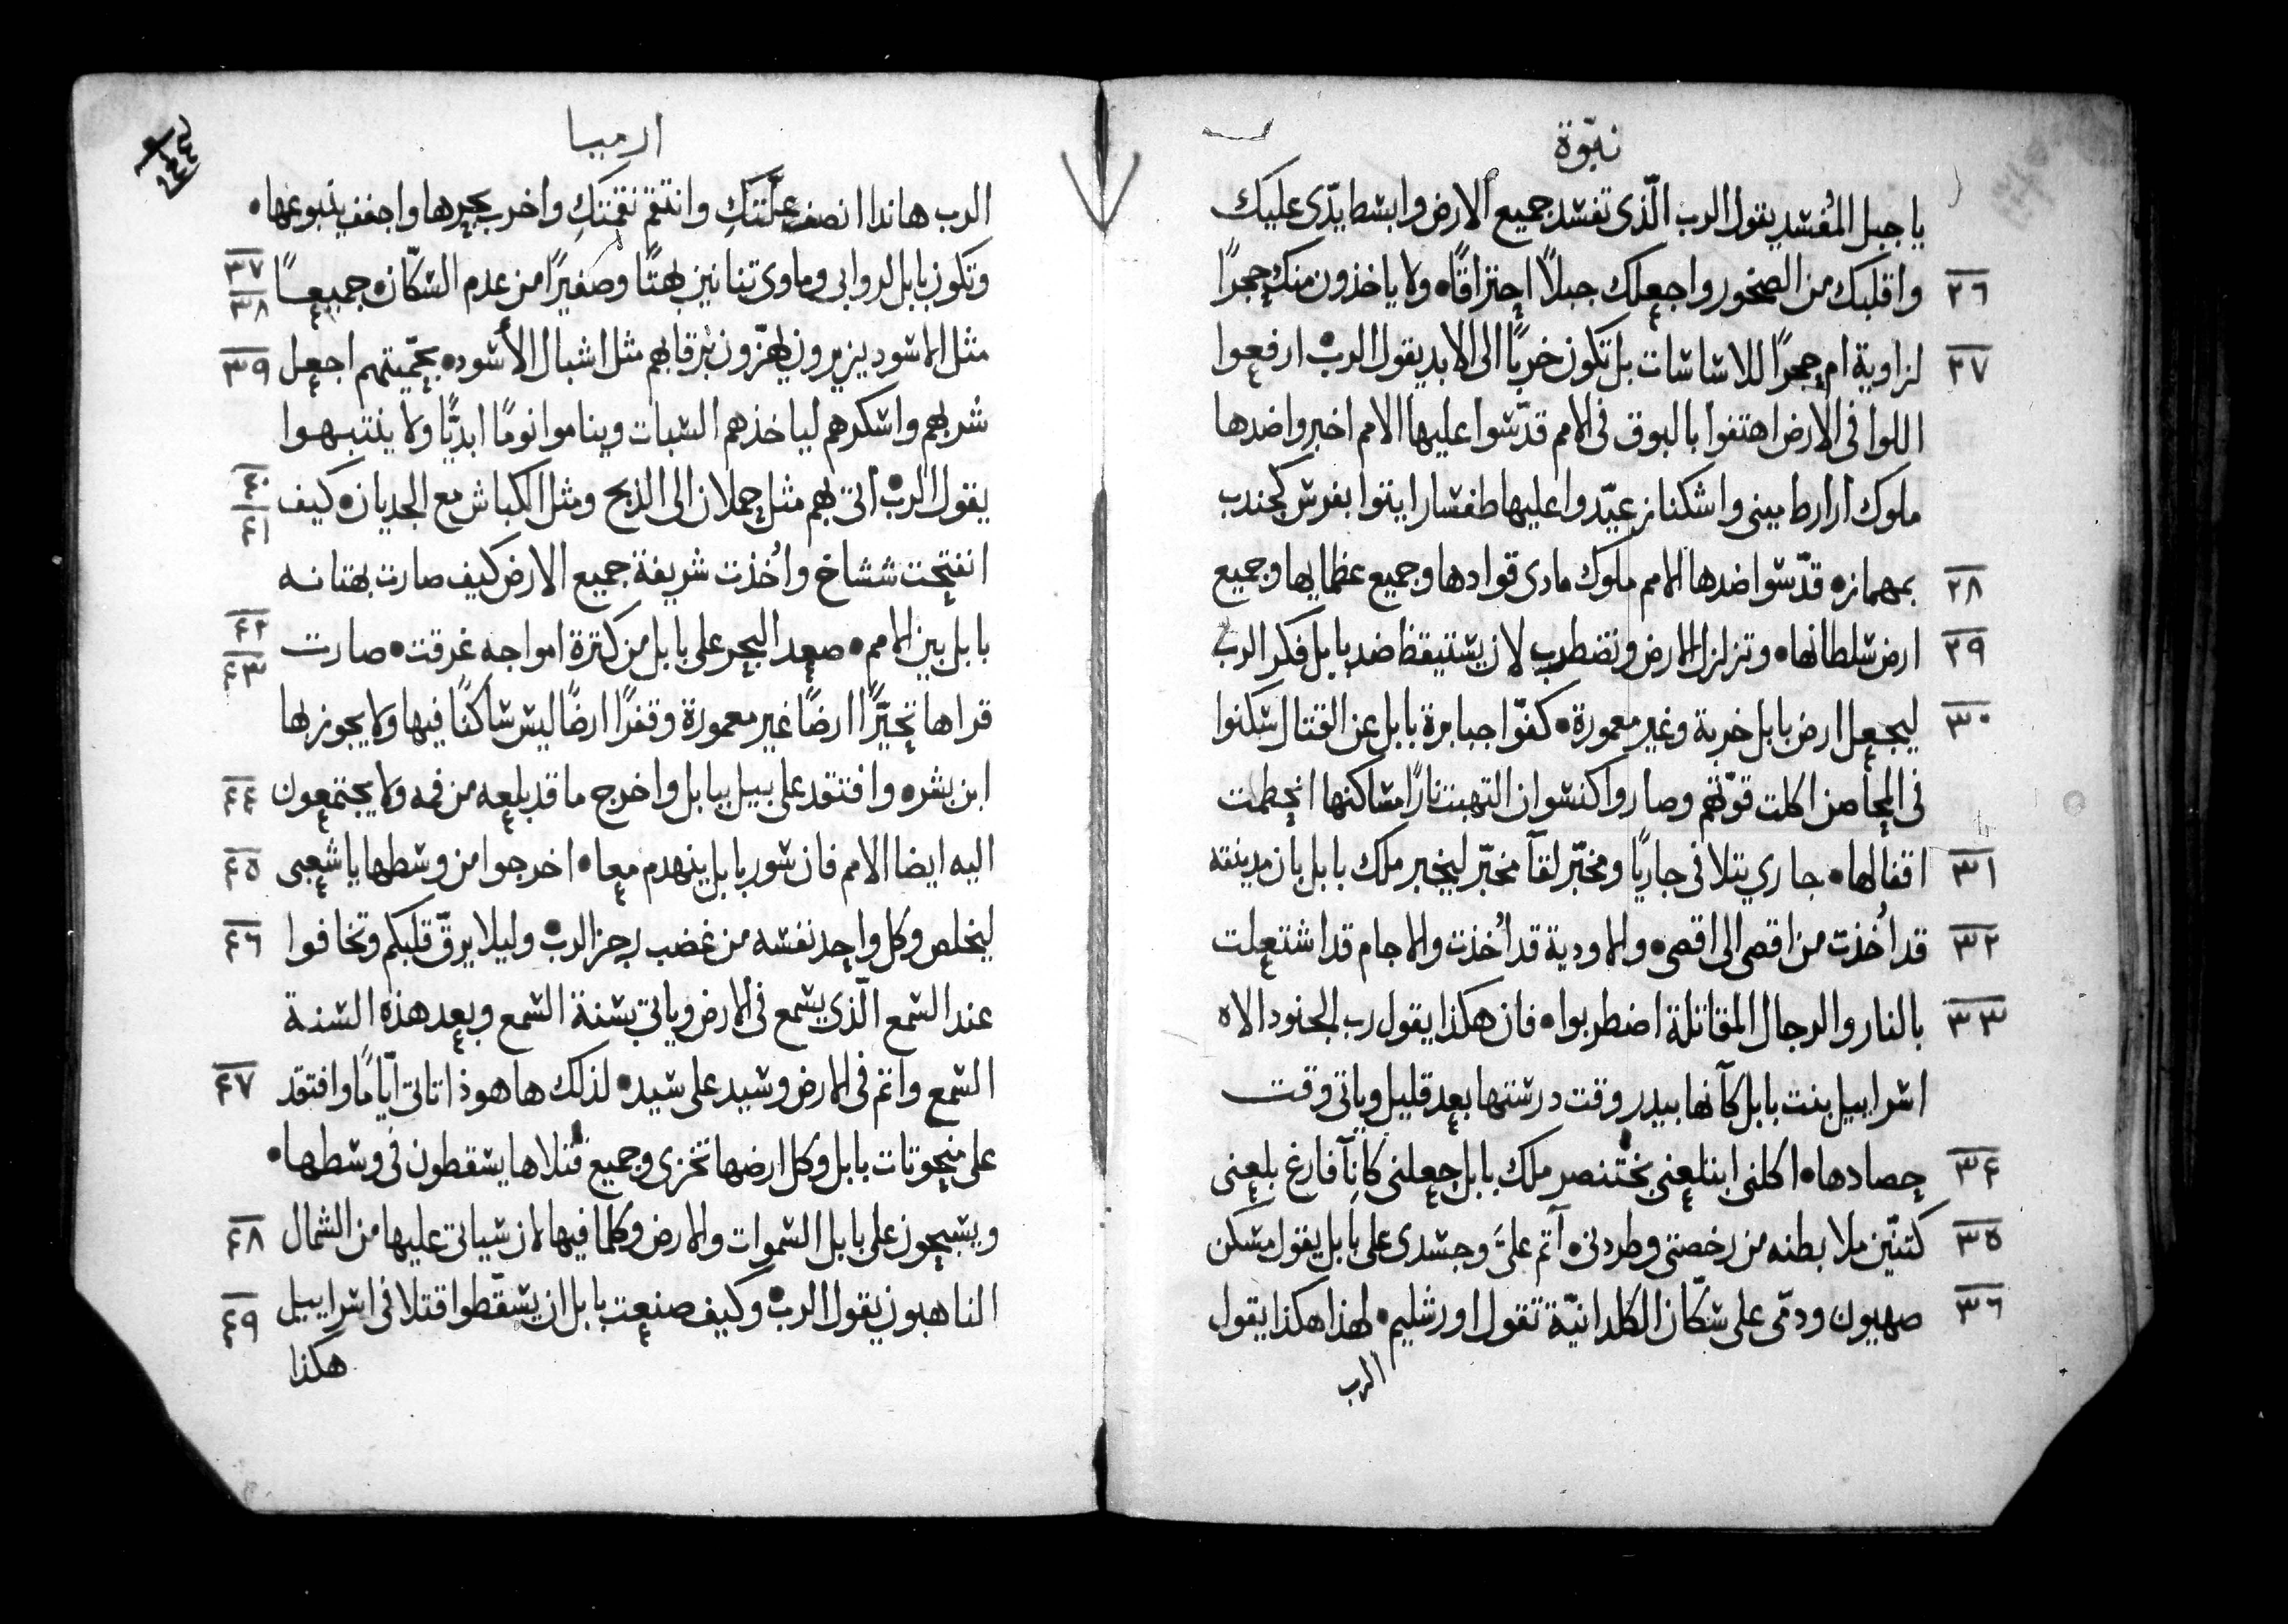 نبوّة
يا جبل المُفسد يقول الرب الّذى تفسد جميع الارض وابسط يدّى عليك
٢٦ واقلبك من الصخور واجعلك جبلاً احتراقًا ولا ياخذون منك حجرًا
٢٧ لزاوية ام حجرًا للاساسات بل تكون خربًا الى الابد يقول الرب ارفعوا
اللوا فى الارض اهتفوا بالبوق فى الامم قدّسوا عليها الامم اخبروا ضدها
ملوك ارارط مينى واشكناز عيّدوا عليها طفسار ايتوا بفرس كجندب
٢٨ بمهماز قدّسوا ضدها الامم ملوك مادى قوادها وجميع عظمايها وجميع
٢٩ ارض سلطانها وتزلزل الارض وتضطرب لان يستيقظ ضد بابل فكر الرب
٣٠ ليجعل ارض بابل خربة وغير معمورة كفّوا جبابرة بابل عن القتال سكنوا
فى المحاصن اكلت قوّتهم وصاروا كنسوان التهبت نارًا مساكنها انحطمت
٣١ اقفالها جاري يتلاقى جاريًا ومخبّر لقآ مخبّر ليخبر ملك بابل بان مدينته
٣٢ قد اُخذت من اقصى الى اقصى والاودية قد اُخذت والاجام قد اشتعلت
٣٣ بالنار والرجال المقاتلة اضطربوا فان هكذا يقول رب الجنود الاه
اسراييل بنت بابل كآنها بيدر وقت درستها بعد قليل وياتى وقت
٣٤ حصادها اكلنى ابتلعنى بختنصر ملك بابل جعلنى كانآ فارغ بلعنى
٣٥ كتنّين ملا بطنه من رخصتى وطردنى آثم علىَّ وجسدى على بابل يقول مسكن
٣٦ صهيون ودمّى على سكّان الكلدانيّة تقول اورشليم لهذا هكذا يقول
الرب
ارميا
الرب هاندا انصف علّتكِ وانتقم نقمتكِ واخرب بحرها واجفف ينبوعها
٣٧ ٣٨ وتكون بابل لروابى وماوى تنانين بهتًا وصفيرًا من عدم السكّان جميعًا
٣٩ مثل الاسود يزيرون يهزّون برقابهم مثل اشبال الأسود بحمّيتهم اجعل
شربهم واسكرهم لياخذهم السبات ويناموا نومًا ابديًّا ولا ينتبهوا
٤٠ ٤١ يقول الرب اتى بهم مثل حملان الى الذبح ومثل الكباش مع الجديان كيف
انفتحت ششاخ واُخذت شريفة جميع الارض كيف صارت بهتانه
٤٢ ٤٣ بابل بين الامم صعد البحر على بابل من كترة امواجه غرقت صارت
قراها تحيّرًا ارضًا غير معمورة وقفرًا ارضًا ليس ساكنًا فيها ولا يجوز بها
٤٤ ابن بشر وافتقد على بيل ببابل واخرج ما قد بلعه من فمه ولا يجتمعون
٤٥ اليه ايضا الامم فان سور بابل ينهدم معا اخرجوا من وسطها يا شعبى
٤٦ ليخلص وكل واحد نفسه من غضب رجز الرب وليلا يرقّ قلبكم وتخافوا
عند السمع الّذى يسمع فى الارض وياتى بسنة السمع وبعد هذه السنة
٤٧ السمع واثم فى الارض وسيد على سيد لذلك ها هوذا تاتى ايّامًا وافتقد
على منحوتات بابل وكل ارضها تخزى وجميع قتلاها يسقطون فى وسطها
٤٨ ويسبحون على بابل السموات والارض وكلما فيها لان سياتى عليها من الشمال
٤٩ الناهبون يقول الرب وكيف صنعت بابل ان يسقّطوا قتلا فى اسراييل
هكذا